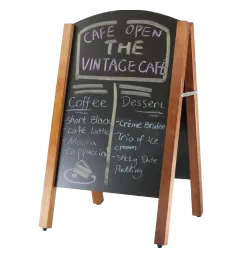 CAFE OPEN
THE
VINTAGE CAFÉ
Coffee
Short Black
Café Latte
Mocha
Cappuccino
Dessert
- Crème Brulee
- Trio of Ice
cream
- Sticky Date
Pudding